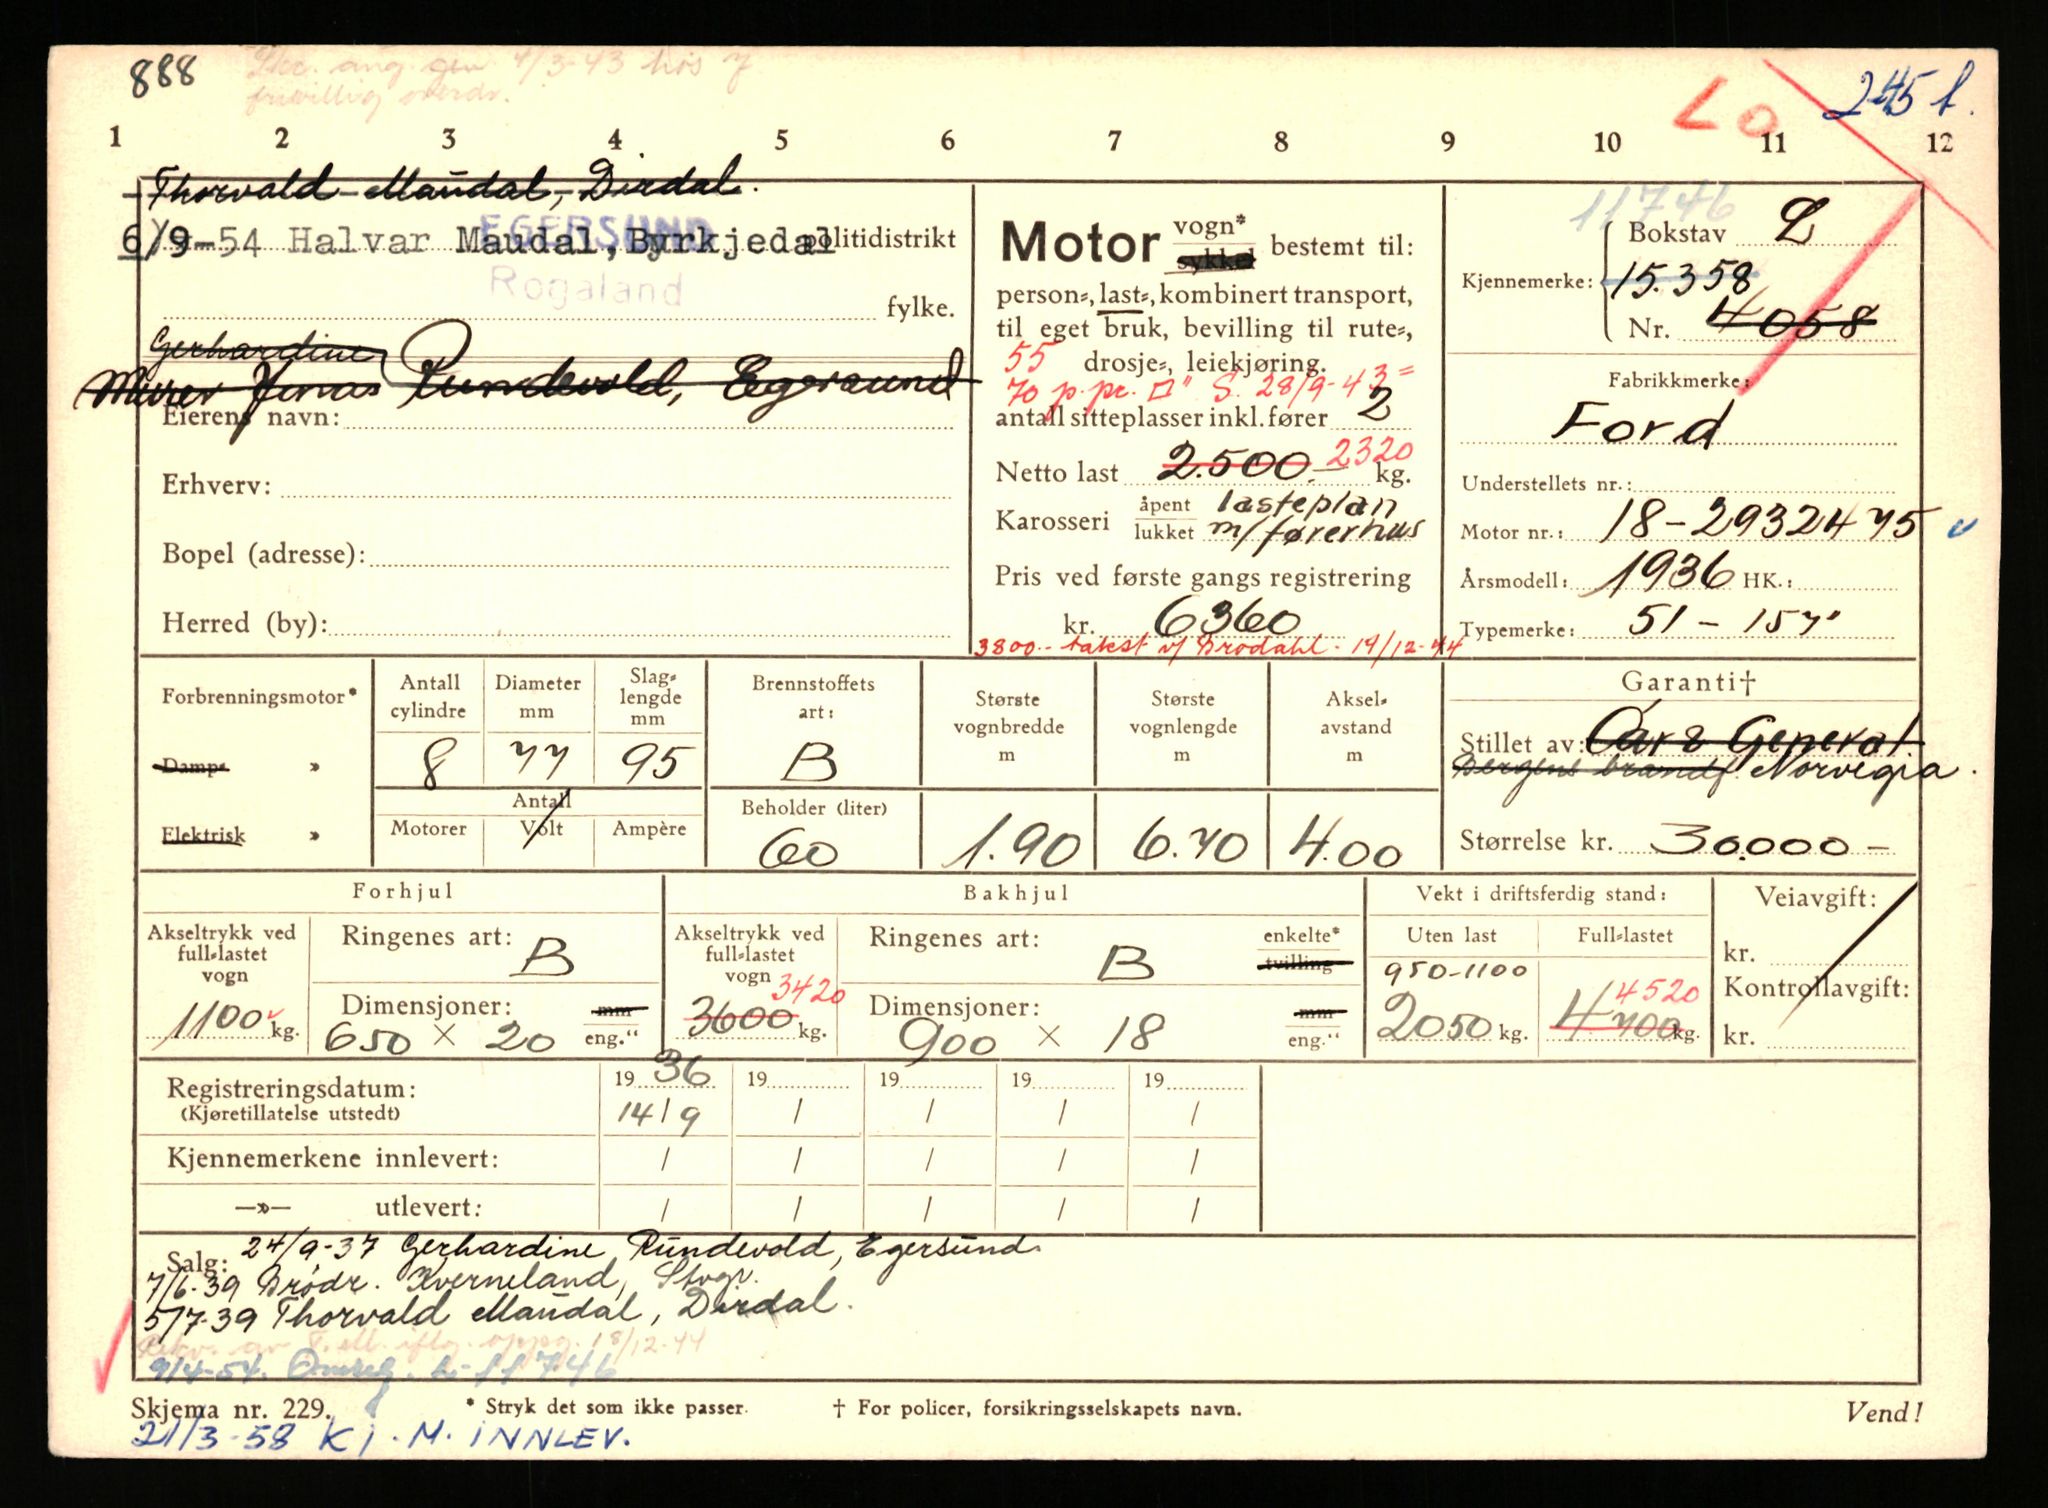 888
4/3-43 hos
frivillig
L o
245 f.
1 2 3 4 5 6 7 8 9 10 11 12
Thorvald Maudal, Dirdal.
EGERSUND politidistrikt
6/9-54 Halvar Maudal, Byrkjedal
Rogaland fylke.
Gerhardine
Murer Jonas Rundevold, Egersund
Eierens navn:
Erhverv:
Bopel (adresse):
Herred (by):
Motor vogn* sykkel bestemt til:
person=, last=, kombinert transport,
til eget bruk, bevilling til rute=,
55 drosje=, leiekjøring.
70 p. pr. □" S. 28/9-43 =
antall sitteplasser inkl. fører 2
Netto last 2.500.- 2320 kg.
Karosseri åpent lukket lasteplan m/førerhus
Pris ved første gangs registrering
kr. 6360
3800.- takst v/ Brodahl. 19/12-44
11746
Kjennemerke: Bokstav L
15.358
Nr. 4058
Fabrikkmerke:
Ford
Understellets nr.:
Motor nr.: 18-2932475
Årsmodell: 1936 HK.:
Typemerke: 51-157"
Forbrenningsmotor*
Damp= »
Elektrisk »
Antall cylindre 8
Diameter mm 77
Slag=lengde mm 95
Antall
Motorer Volt Ampère
Brennstoffets art: B
Beholder (liter) 60
Største vognbredde m 1.90
Største vognlengde m 6.70
Aksel=avstand m 4.00
Garanti†
Stillet av: General
Bergens brandf Norvegia.
Størrelse kr. 30.000-
Forhjul
Akseltrykk ved full=lastet vogn 1100 kg.
Ringenes art: B
Dimensjoner: 650 × 20 mm eng."
Bakhjul
Akseltrykk ved full=lastet vogn 3420
3600 kg.
Ringenes art: B enkelte* tvilling
Dimensjoner: 900 × 18 mm eng."
Vekt i driftsferdig stand:
Uten last 950-1100
2050 kg.
Full=lastet 4520
4700 kg.
Veiavgift:
kr.
Kontrollavgift:
kr.
Registreringsdatum: 19 36 19 19 19 19
(Kjøretillatelse utstedt) 14/9 / / / /
Kjennemerkene innlevert: / / / / /
—»— utlevert: / / / / /
Salg: 24/9-37 Gerhardine Rundevold, Egersund
7/6-39 Brødr. Kverneland, Stvgr.
5/7-39 Thorvald Maudal, Dirdal.
18/12-44
9/4-54. Omreg. L-11746
Skjema nr. 229. * Stryk det som ikke passer. † For policer, forsikringsselskapets navn. Vend!
21/3-58 KJ.M. INNLEV.